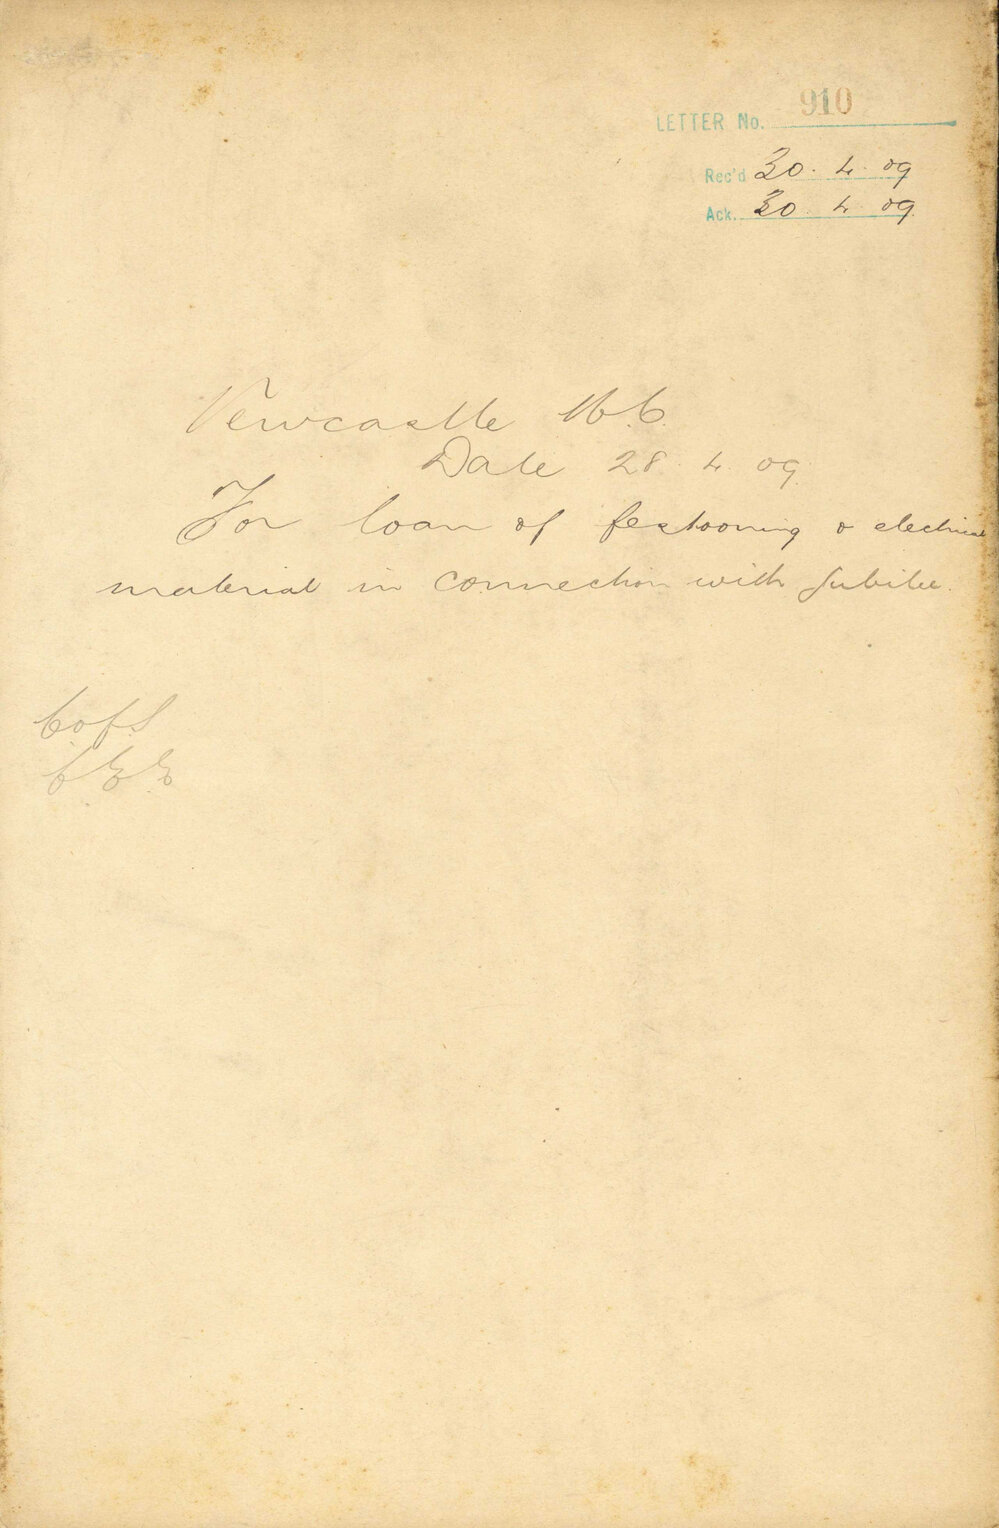 LETTER No. 910
Rec'd 30. 4. 09
Ack. 30. 4. 09.
Newcastle M.C.
Date 28. 4. 09.
For loan of festooning & electrical
material in connection with Jubilee.
C of S
C.E.E.